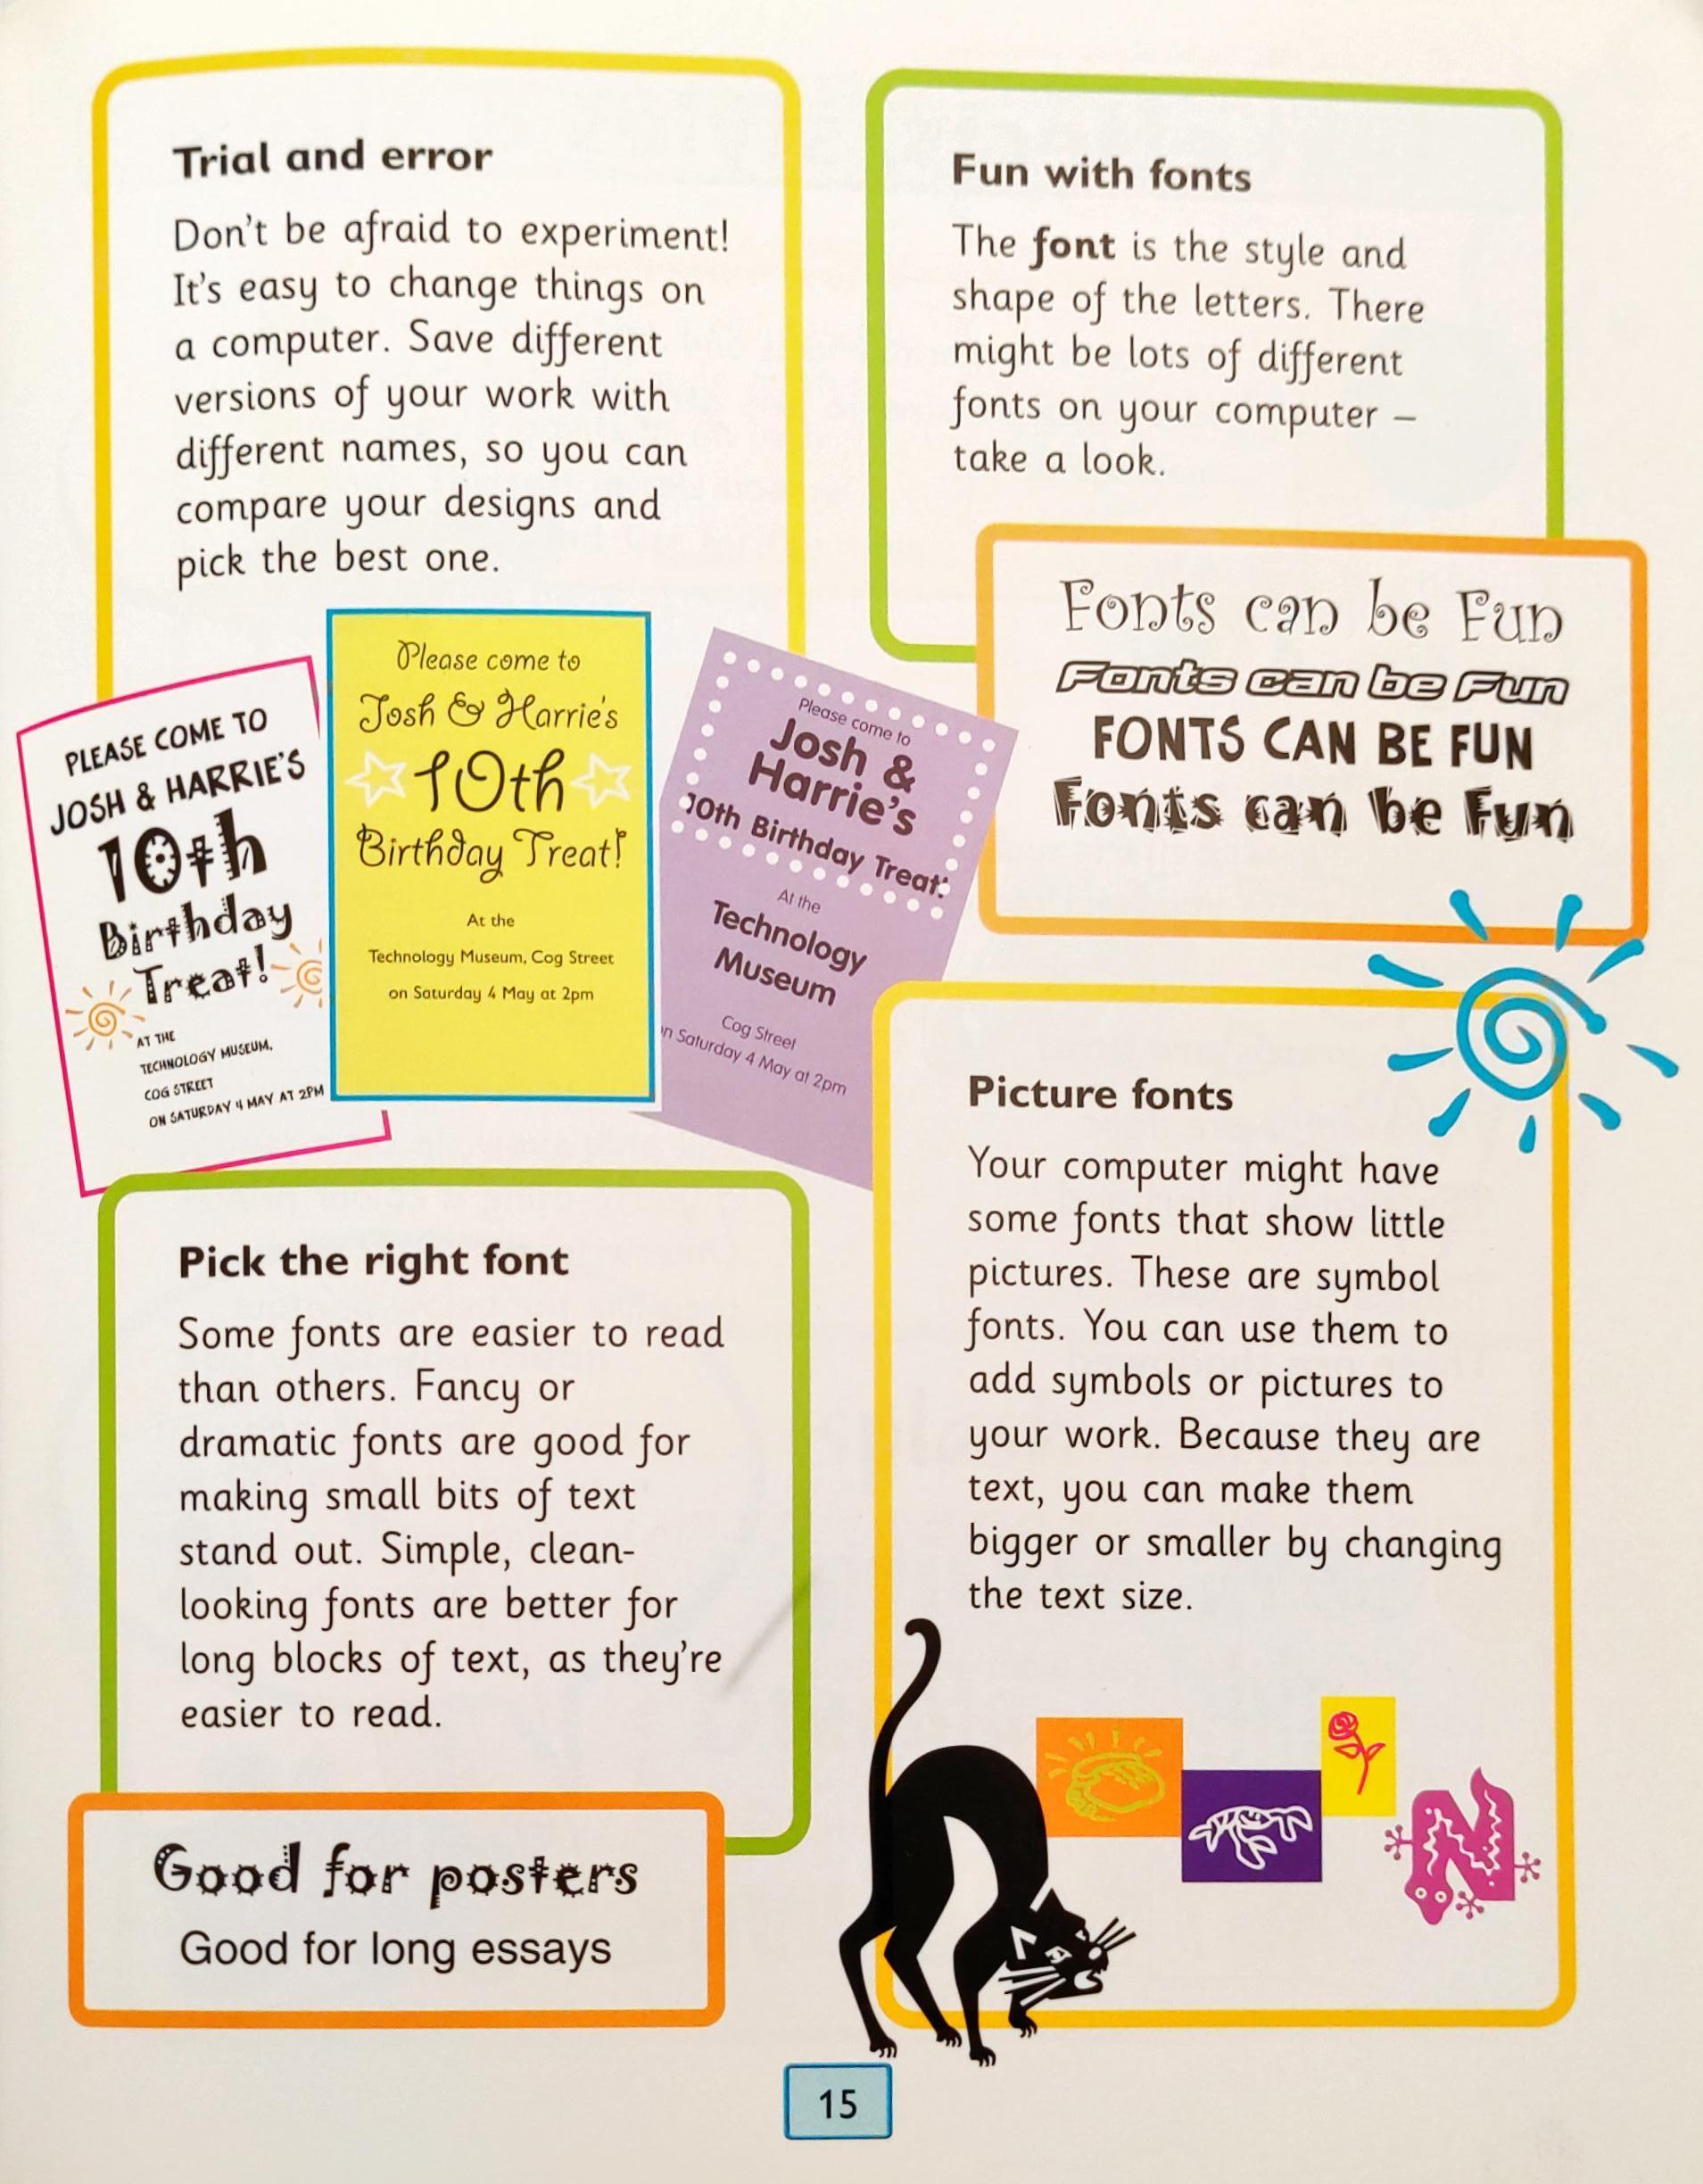 Trial and error
Don't be afraid to experiment!
It's easy to change things on
a computer. Save different
versions of your work with
different names, so you can
compare your designs and
pick the best one.
PLEASE COME TO
JOSH & HARRIE'S
10th
Birthday
Treat!
AT THE
TECHNOLOGY MUSEUM,
COG STREET
ON SATURDAY 4 MAY AT 2PM
Please come to
Josh & Harrie's
10th
Birthday Treat!
At the
Technology Museum, Cog Street
on Saturday 4 May at 2pm
Please come to
Josh &
Harrie's
10th Birthday Treat!
At the
Technology
Museum
Cog Street
n Saturday 4 May at 2pm
Fun with fonts
The font is the style and
shape of the letters. There
might be lots of different
fonts on your computer –
take a look.
Fonts can be Fun
Fonts can be Fun
FONTS CAN BE FUN
Fonts can be Fun
Pick the right font
Some fonts are easier to read
than others. Fancy or
dramatic fonts are good for
making small bits of text
stand out. Simple, clean-
looking fonts are better for
long blocks of text, as they're
easier to read.
Good for posters
Good for long essays
Picture fonts
Your computer might have
some fonts that show little
pictures. These are symbol
fonts. You can use them to
add symbols or pictures to
your work. Because they are
text, you can make them
bigger or smaller by changing
the text size.
15